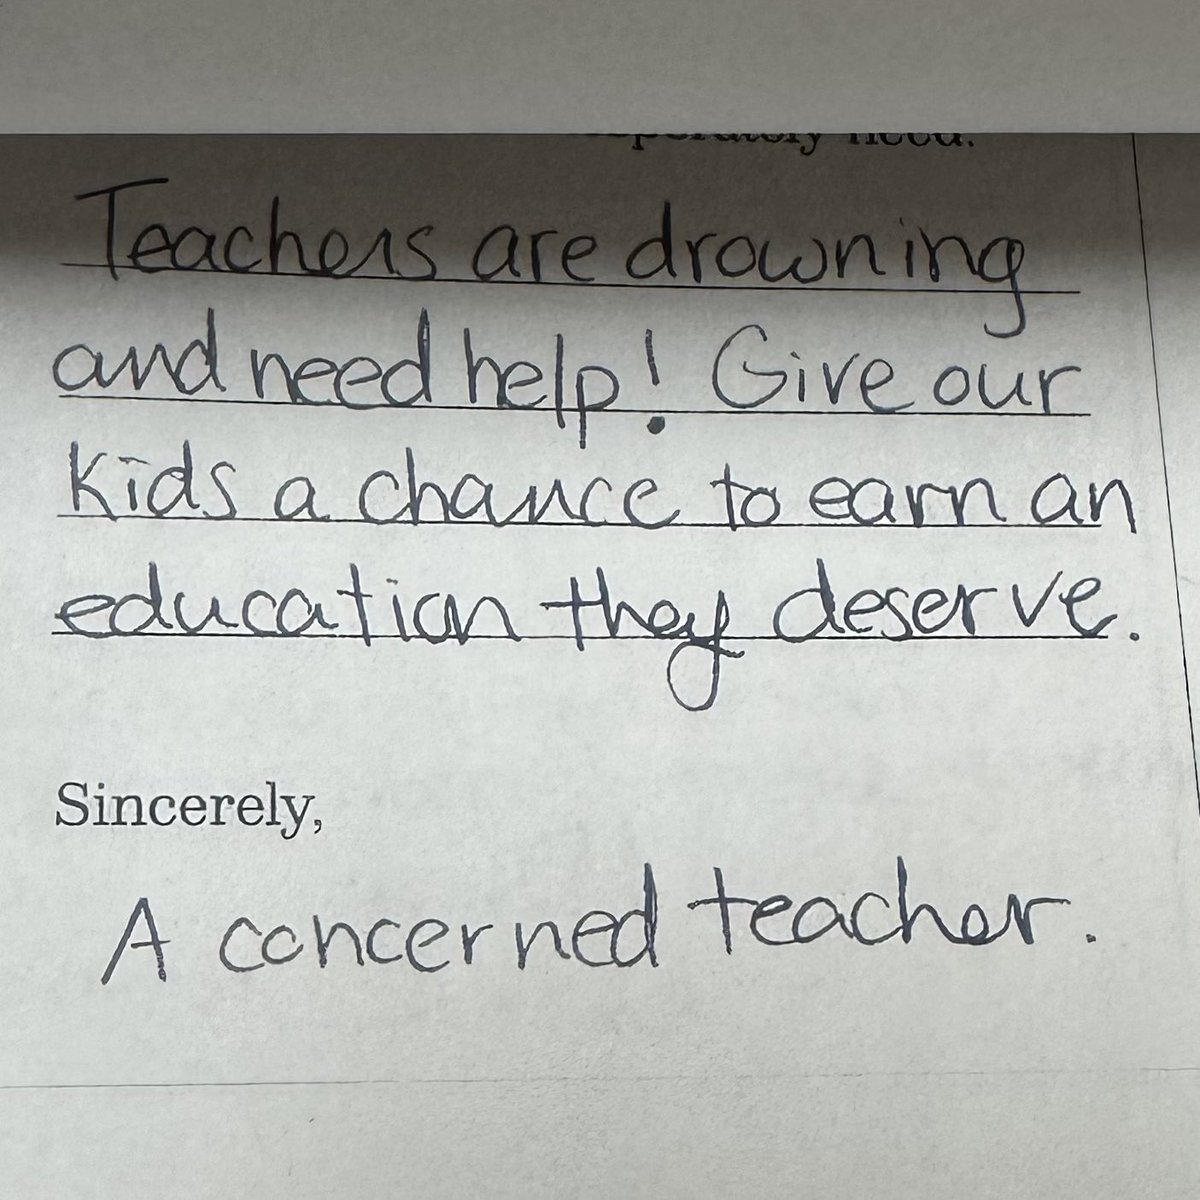 need.
Teachers are drowning
and need help! Give our
kids a chance to earn an
education they deserve.
Sincerely,
A concerned teacher.